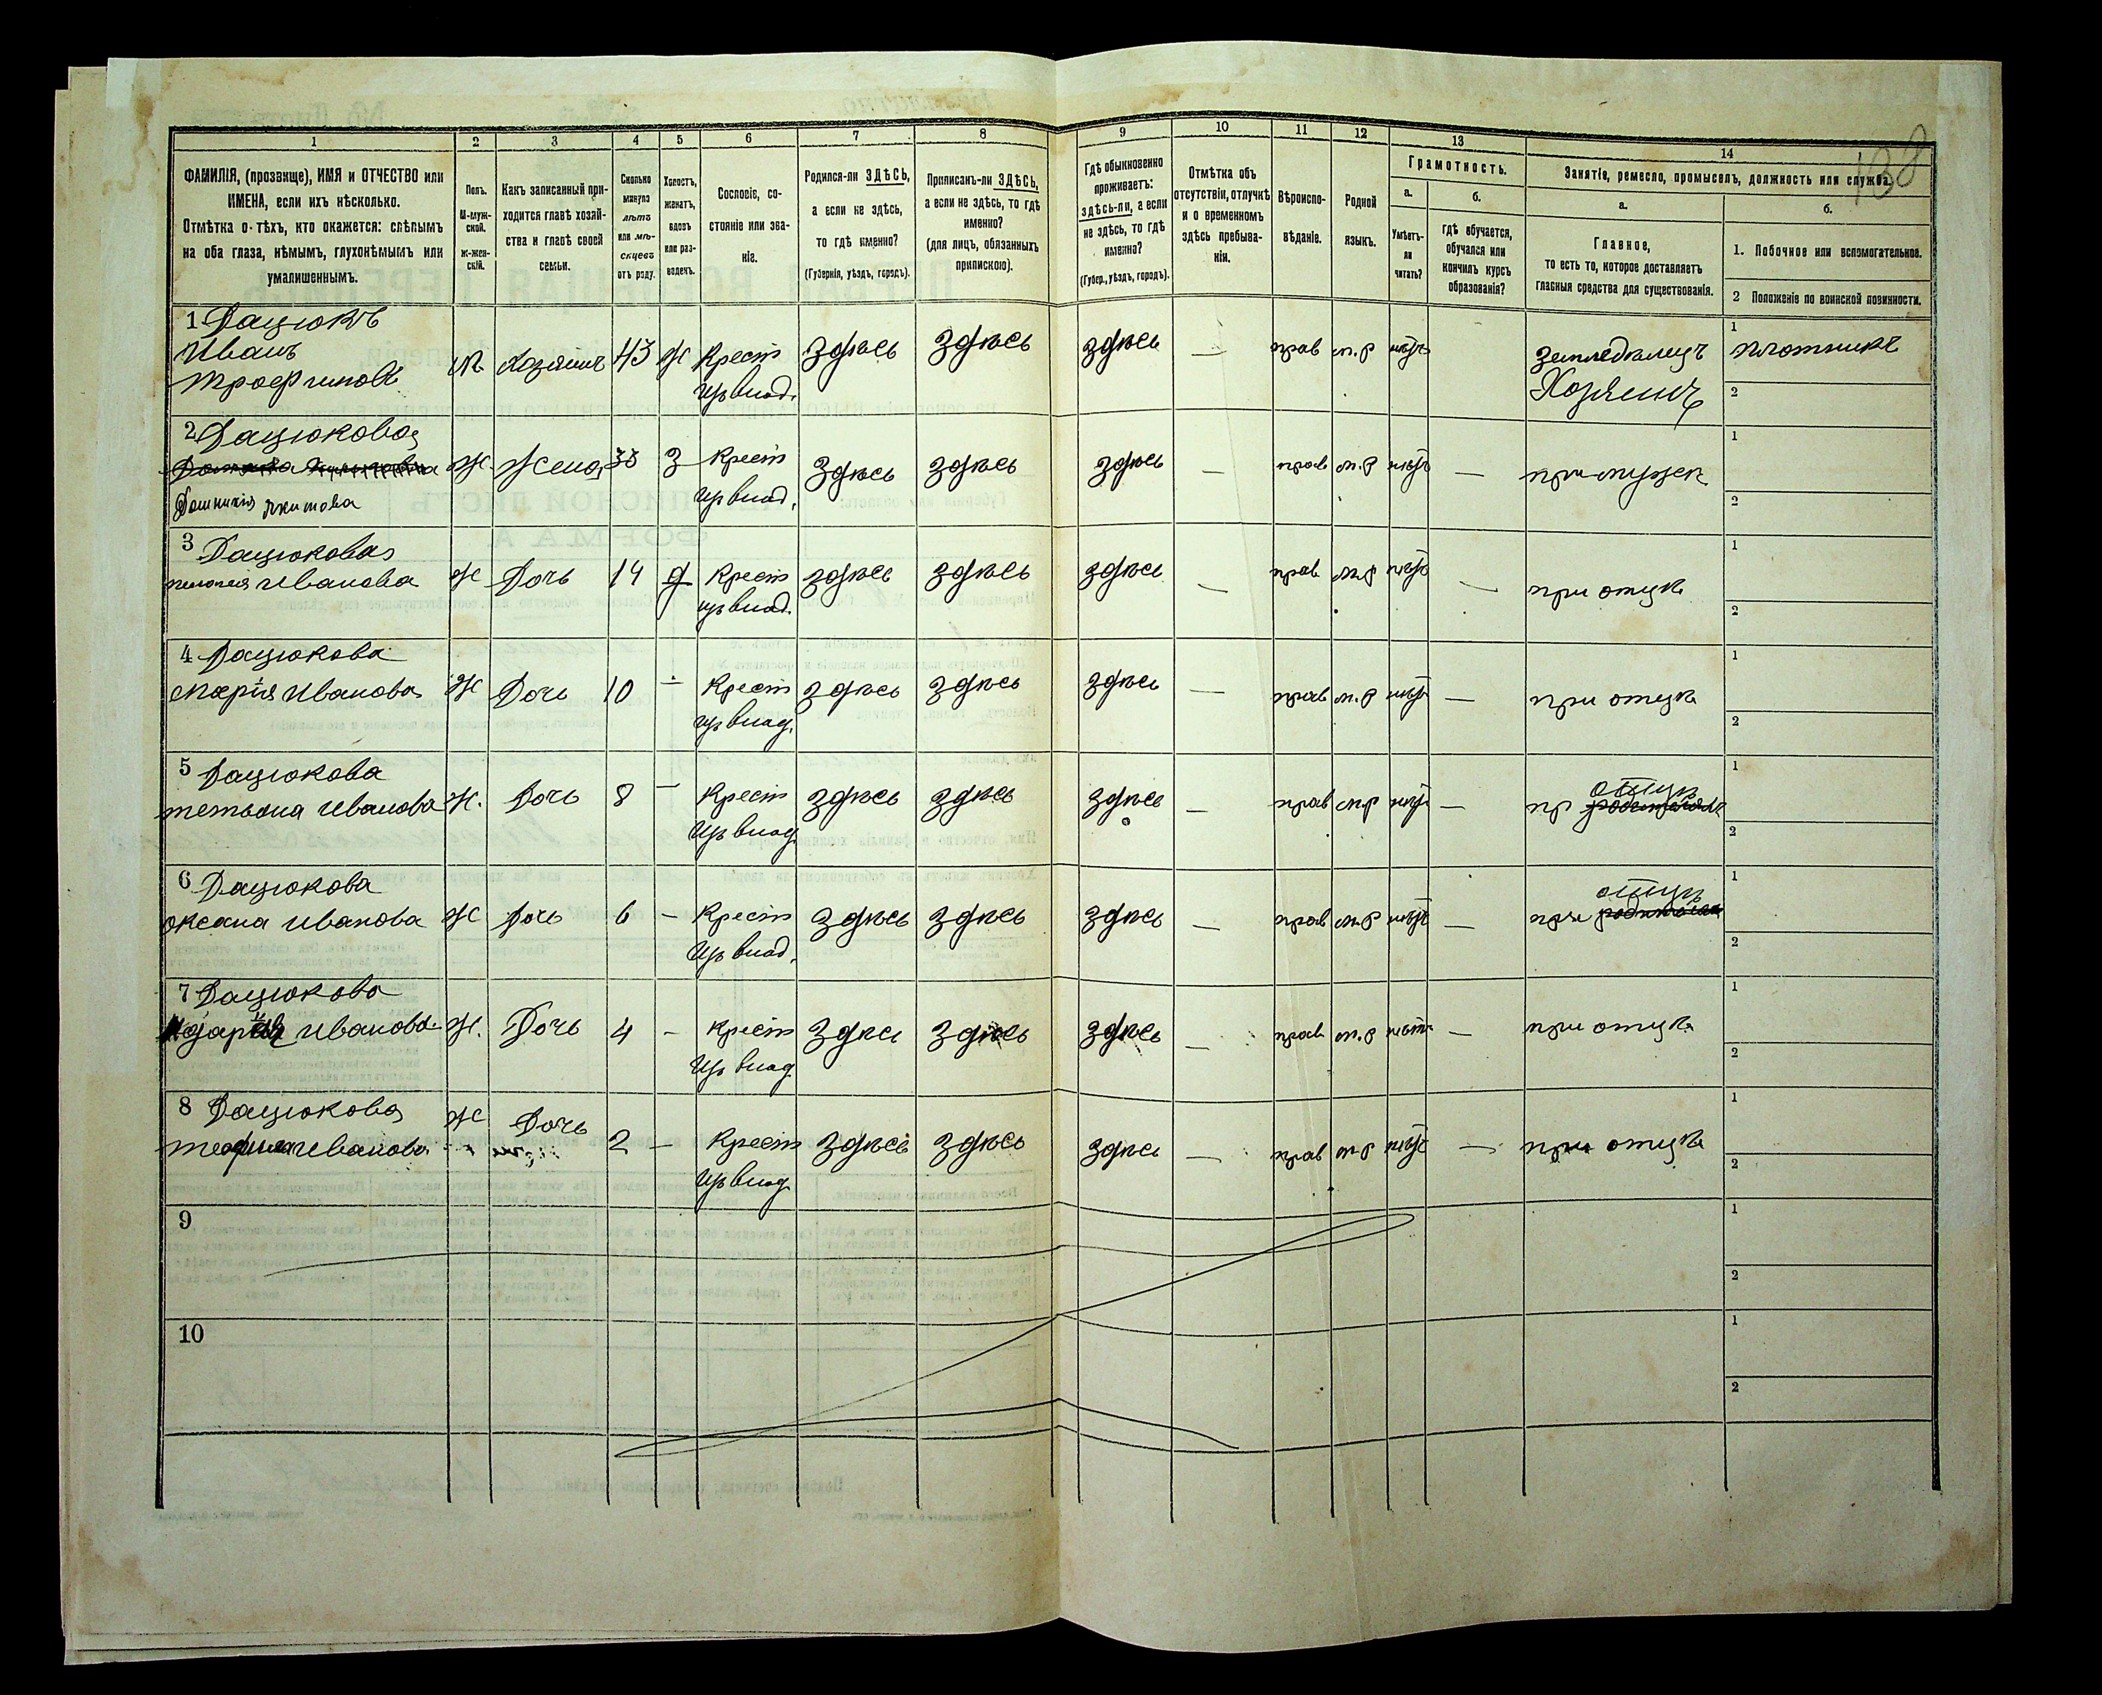 1 2 3 4 5 6 7 8 9 10 11 12 13 14
138
ФАМИЛІЯ, (прозвище), ИМЯ и ОТЧЕСТВО или
ИМЕНА, если ихъ нѣсколько.
Отмѣтка о тѣхъ, кто окажется: слѣпымъ
на оба глаза, нѣмымъ, глухонѣмымъ или
умалишеннымъ.
Полъ.
М-муж-
ской.
Ж-жен-
скій.
Какъ записанный при-
ходится главѣ хозяй-
ства и главѣ своей
семьи.
Сколько
минуло
лѣтъ
или мѣ-
сяцевъ
отъ роду.
Холостъ,
женатъ,
вдовъ
или раз-
веденъ.
Сословіе, со-
стояніе или зва-
ніе.
Родился-ли ЗДѢСЬ,
а если не здѣсь,
то гдѣ именно?
(Губернія, уѣздъ, городъ).
Приписанъ-ли ЗДѢСЬ,
а если не здѣсь, то гдѣ
именно?
(для лицъ, обязанныхъ
припискою).
Гдѣ обыкновенно
проживаетъ:
здѣсь-ли, а если
не здѣсь, то гдѣ
именно?
(Губер., уѣздъ, городъ).
Отмѣтка объ
отсутствіи, отлучкѣ
и о временномъ
здѣсь пребыва-
ніи.
Вѣроиспо-
вѣданіе.
Родной
языкъ.
Грамотность.
а.
Умѣетъ-
ли
читать?
б.
гдѣ обучается,
обучался или
кончилъ курсъ
образованія?
Занятіе, ремесло, промыселъ, должность или служба.
а.
Главное,
то есть то, которое доставляетъ
главныя средства для существованія.
б.
1. Побочное или вспомогательное.
2 Положеніе по воинской повинности.
1 Дацюкъ
Иванъ
Трофимовъ
м Хозяинъ 43 ж Крест здѣсь здѣсь здѣсь — прав м.р нѣтъ земледѣлецъ 1 плотникъ
изъ влад.
Хозяинъ 2
2 Дацюкова
Домникія
ж Жена 38 з Крест здѣсь здѣсь здѣсь — прав м.р нѣтъ — при мужѣ 1
изъ влад. 2
3 Дацюкова
Иванова ж Дочь 14 д Крест здѣсь здѣсь здѣсь — прав м.р нѣтъ — при отцѣ 1
изъ влад. 2
4 Дацюкова
Марія Иванова ж Дочь 10 — Крест здѣсь здѣсь здѣсь — прав м.р нѣтъ — при отцѣ 1
изъ влад. 2
5 Дацюкова
Тетьяна Иванова ж. Дочь 8 — Крест здѣсь здѣсь здѣсь — прав м.р нѣтъ — пр отцѣ 1
изъ влад 2
6 Дацюкова
Оксана Иванова ж Дочь 6 — Крест здѣсь здѣсь здѣсь — прав м.р нѣтъ — при отцѣ 1
изъ влад. 2
7 Дацюкова
Дарія Иванова ж. Дочь 4 — Крест здѣсь здѣсь здѣсь — прав м.р нѣтъ — при отцѣ 1
изъ влад 2
8 Дацюкова
Теофила Иванова ж Дочь 2 — Крест здѣсь здѣсь здѣсь — прав м.р нѣтъ — при отцѣ 1
изъ влад 2
9 1
2
10 1
2